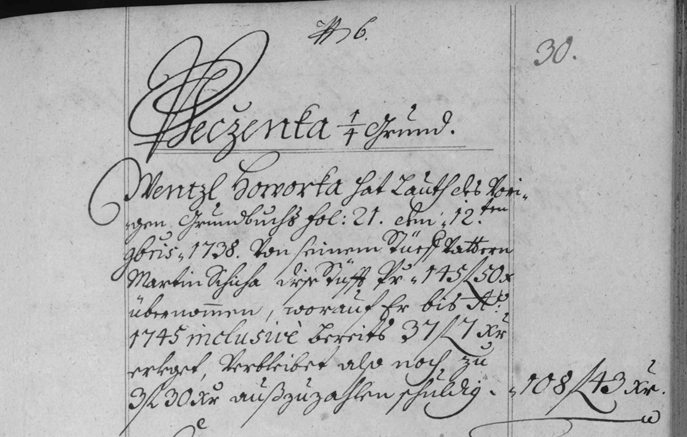 No 6.
30.
Peczenka 1/4 Grund.
Wentzl Howorka hat Lauth des Vori-
gen Grundbuchs fol: 21. dem 12.ten
9bris 1738. Von seinem Stüeff Vattern
Martin Schuha diese Pr 145 f 50 x
übernommen, worauf Er bis Ao:
1745 inclusivè bereits 37 f 7 xr
erleget, Verbleibet also noch zu
3 f 30 xr außzuzahlen schuldig. 108 f 43 xr.